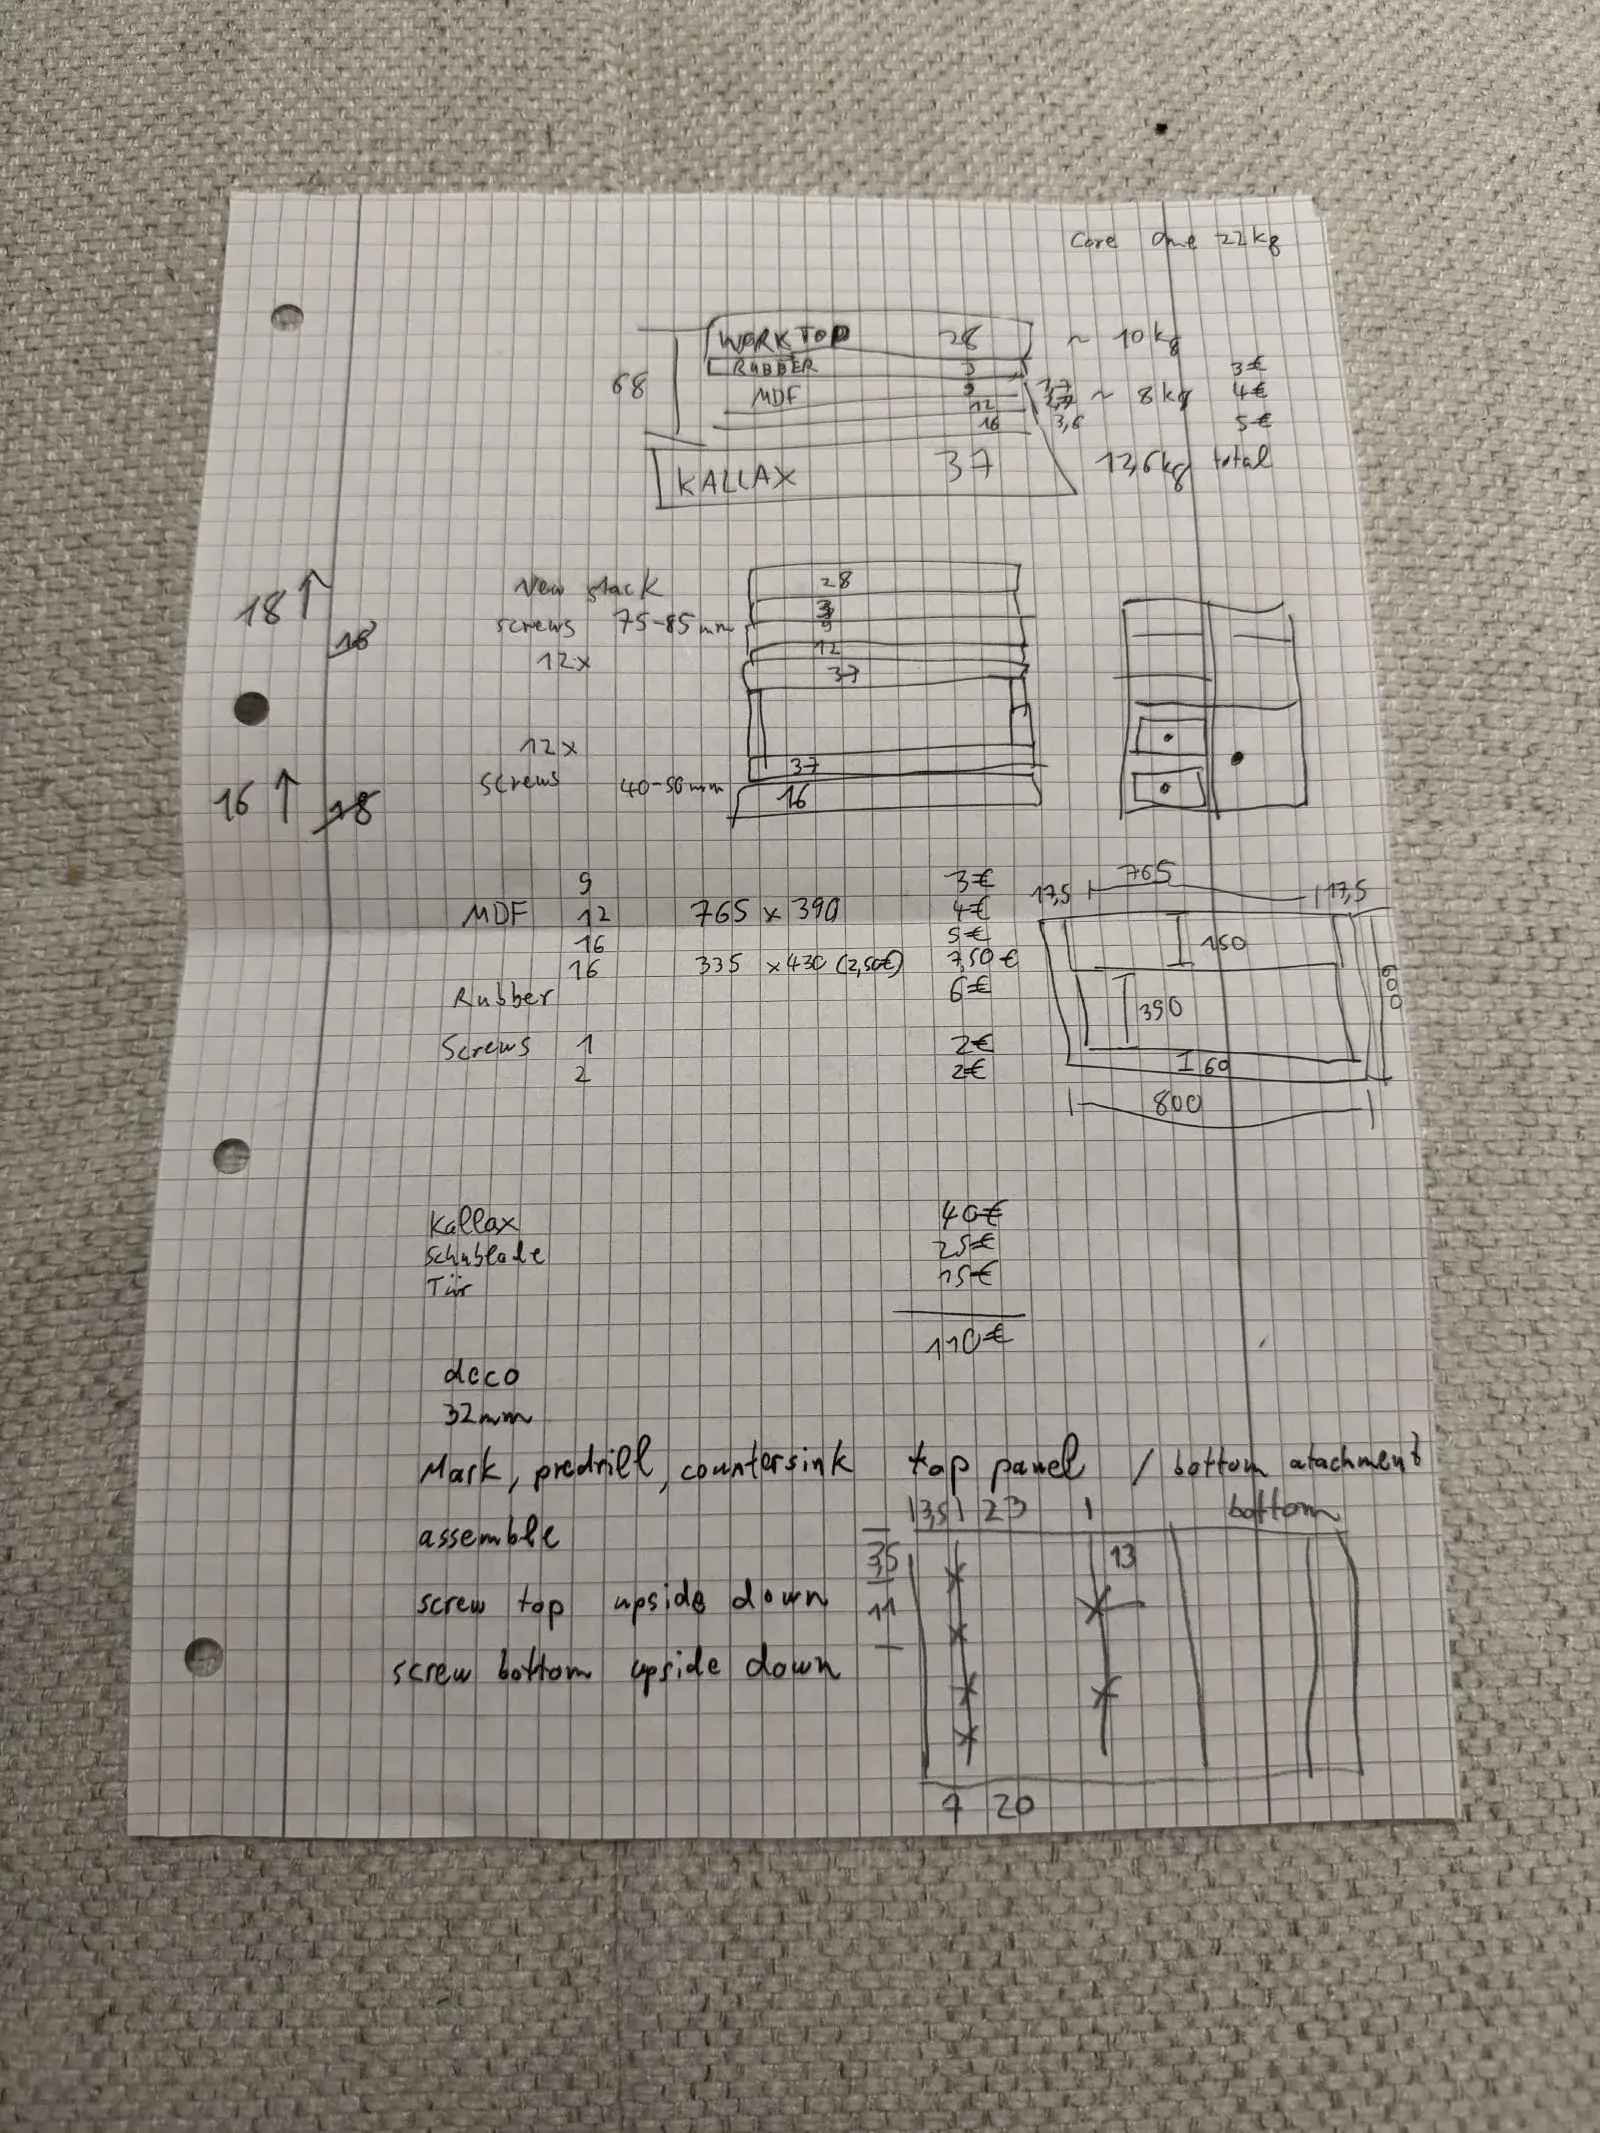 Core One 22kg
WORKTOP 28 ~ 10kg
RUBBER 3 3€
68 MDF 9 ~ 8kg 4€
12
16 3,6 5€
KALLAX 37 13,6kg total
18↑ 18
New stack 28
screws 75-85mm 3
9
12x 12
37
12x
16↑ 18
screws 40-50mm 37
16
9 3€
MDF 12 765 x 390 4€
16 5€
16 335 x 430 (2,50€) 7,50€
Rubber 6€
Screws 1 2€
2 2€
17,5 765 17,5
150
390
600
60
800
Kallax 40€
Schublade 25€
Tür 15€
110€
deco
32mm
Mark, predrill, countersink top panel / bottom atachment
3,5 23 bottom
assemble 35 13
screw top upside down 11
screw bottom upside down
20